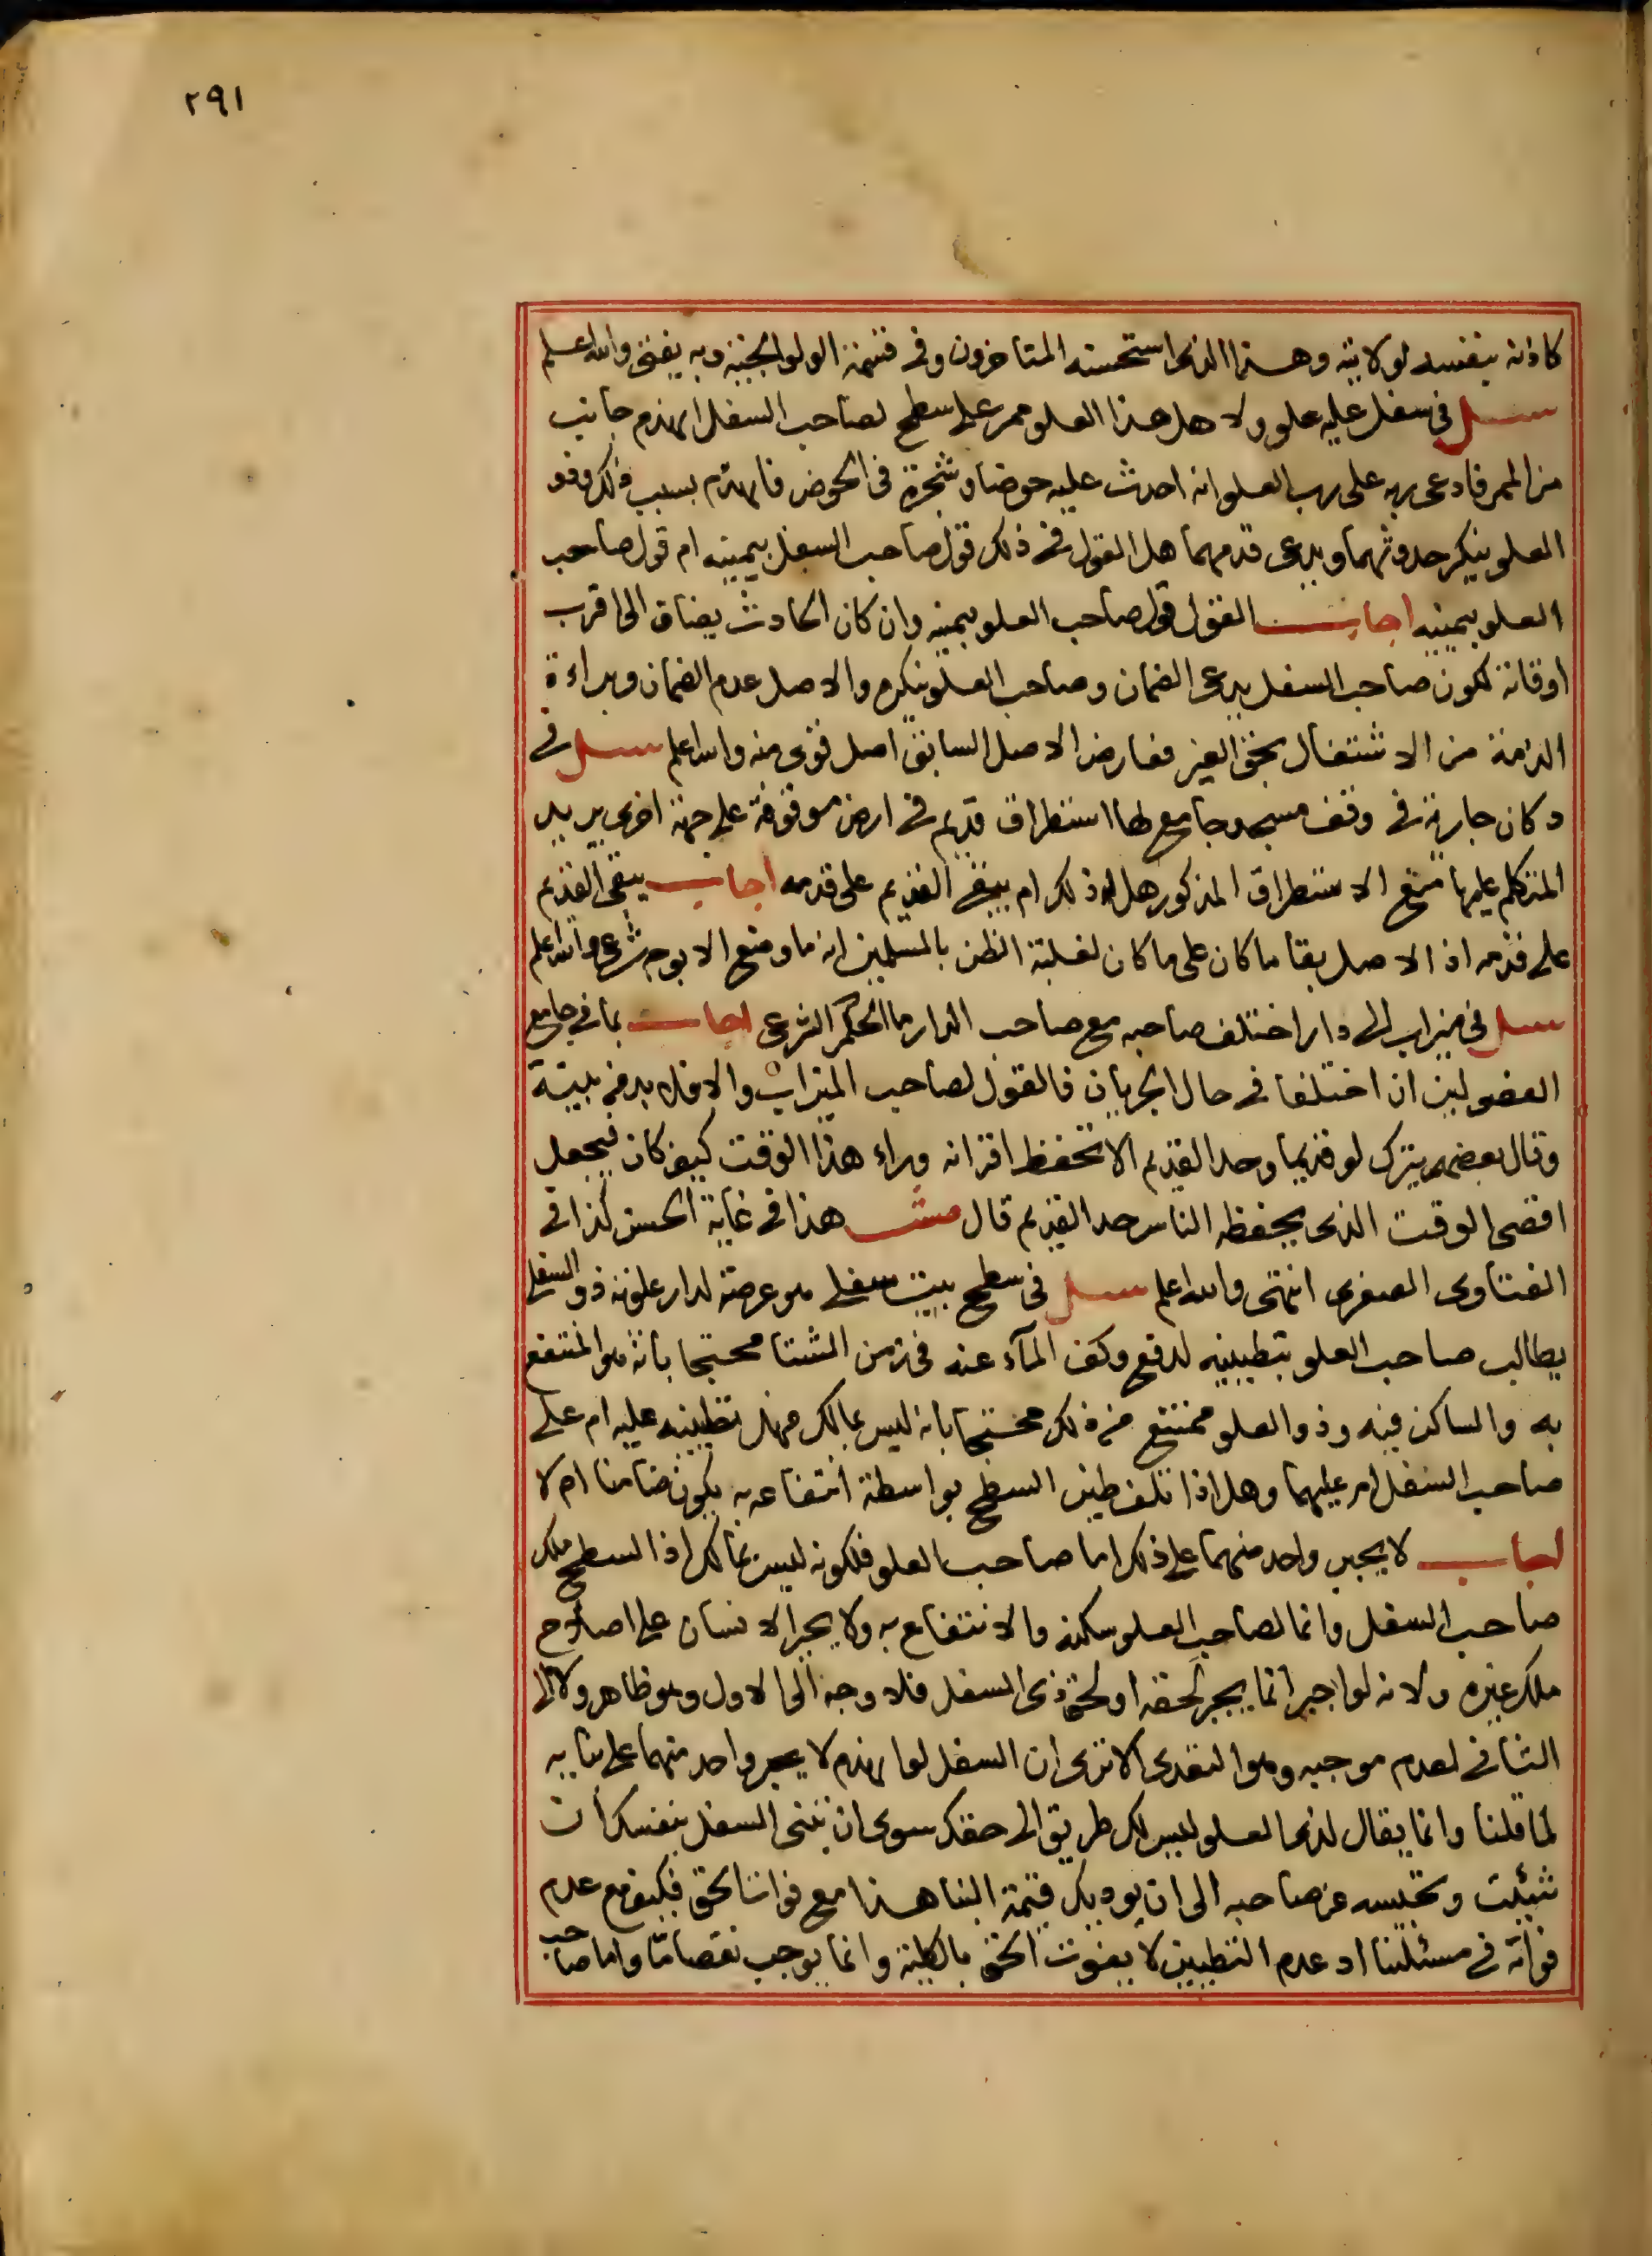 ٢٩١
كاذنه بنفسه لولايته وهذا الذى استحسنه المتاخرون وفى قسمة الولوالجية وبه يفتى والله اعلم
سئل فى سفل عليه علو ولاهل هذا العلو ممر على سطح لصاحب السفل انهدم جانب
من الممر فادعى ربه على رب العلو انه احدث عليه حوضا وشجرة فى الحوض فانهدم بسبب ذلك وذو
العلو ينكر حدوثهما ويدعى قدمهما هل القول فى ذلك قول صاحب السفل بيمينه ام قول صاحب
العلو بيمينه اجاب القول قول صاحب العلو بيمينه وان كان الحادث يضاف الى اقرب
اوقاته لكون صاحب السفل يدعى الضمان وصاحب العلو ينكره والاصل عدم الضمان وبراءة
الذمة من الاشتغال بحق الغير فعارض الاصل السابق اصل قوى منه والله اعلم سئل فى
دكان جارية فى وقف مسجد جامع لها استطراق قديم فى ارض موقوفة على جهة اخرى يريد
المتكلم عليها منع الاستطراق المذكور هل له ذلك ام يبقى القديم على قدمه اجاب يبقى القديم
على قدمه اذ الاصل بقا ما كان على ما كان لغلبة الظن بالمسلمين انه ما وضع الا بوجه شرعى والله اعلم
سئل فى ميزاب الى دار اختلف صاحبه مع صاحب الدار ما الحكم الشرعى اجاب بما فى جامع
الفصولين ان اختلفا فى حال الجريان فالقول لصاحب الميزاب والا فلا بد من بينة
وقال بعضهم يترك لو قديما وحد القديم الا تحفظ اقرانه وراء هذا الوقت كيف كان فيجعل
اقصى الوقت الذى يحفظه الناس حد القديم قال مش هذا فى غاية الحسن كذا فى
الفتاوى الصغرى انتهى والله اعلم سئل فى سطح بيت سفلى هو عرصة لدار علوية ذو السفل
يطالب صاحب العلو بتطيينه لدفع وكف المآء عنه فى زمن الشتا محتجا بانه هو المنتفع
به والساكن فيه وذو العلو ممتنع من ذلك محتجا بانه ليس بمالك فهل تطيينه عليه ام على
صاحب السفل ام عليهما وهل اذا تلف طين السطح بواسطة انتفاعه به يكون ضامنا ام لا
اجاب لا يجبر واحد منهما على ذلك اما صاحب العلو فلكونه ليس بمالك اذ السطح ملك
صاحب السفل وانما لصاحب العلو سكنه والانتفاع به ولا يجبر الانسان على اصلاح
ملك غيره ولانه لو اجبر انما يجبر لحقه او لحق ذى السفل فلا وجه الى الاول وهو ظاهر ولا الى
الثانى لعدم موجبه وهو التعدى الا ترى ان السفل لو انهدم لا يجبر واحد منهما على بنايه
لما قلنا وانما يقال لذى العلو ليس لك طريق الى حقك سوى ان تبنى السفل بنفسك ان
شيئت وتحبسه عن صاحبه الى ان يوديك قيمة البنا هذا مع فوات الحق فكيف مع عدم
فواته فى مسئلتنا اذ عدم التطيين لا يفوت الحق بالكلية وانما يوجب نقصا ما واما صاحب